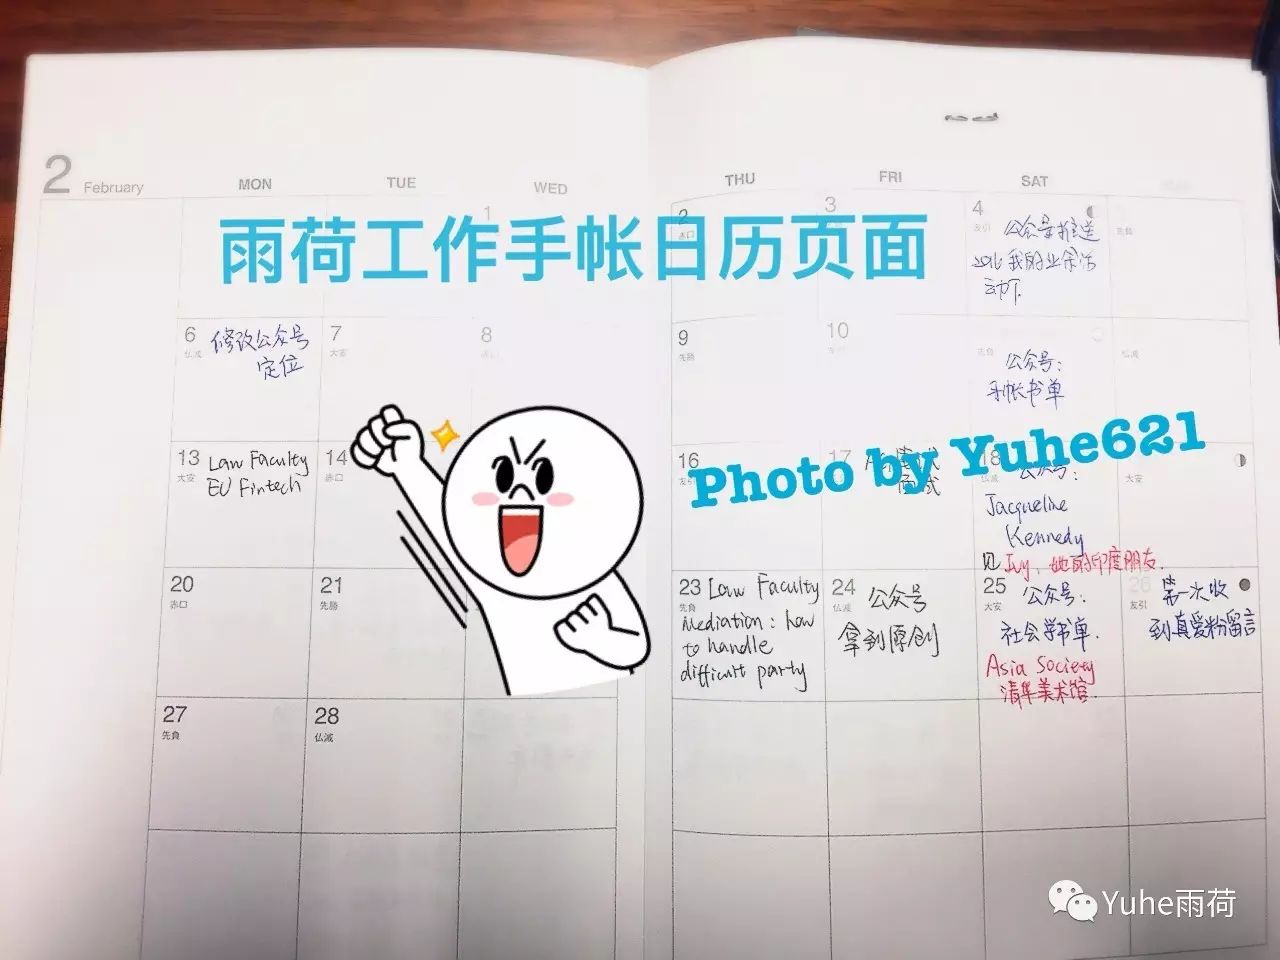 2 February
MON
TUE
WED
THU
FRI
SAT
雨荷工作手帐日历页面
1
2
赤口
3
4
友引
公众号推送
2016我的业余活
动下.
先負
6
仏滅
修改公众号
定位
7
大安
8
赤口
9
先勝
10
友引
先負
公众号:
手帐书单
仏滅
13
大安
Law Faculty
EU Fintech
14
赤口
16
友引
17
面试
18
仏滅
公众号:
Jacqueline
Kennedy
见Ivy, 她的印度朋友.
大安
Photo by Yuhe621
20
赤口
21
先勝
23
先負
Law Faculty
Mediation: how
to handle
difficult party
24
仏滅
公众号
拿到原创
25
大安
公众号:
社会学书单.
Asia Society
清华美术馆.
26
友引
第一次收
到真爱粉留言
27
先負
28
仏滅
Yuhe雨荷